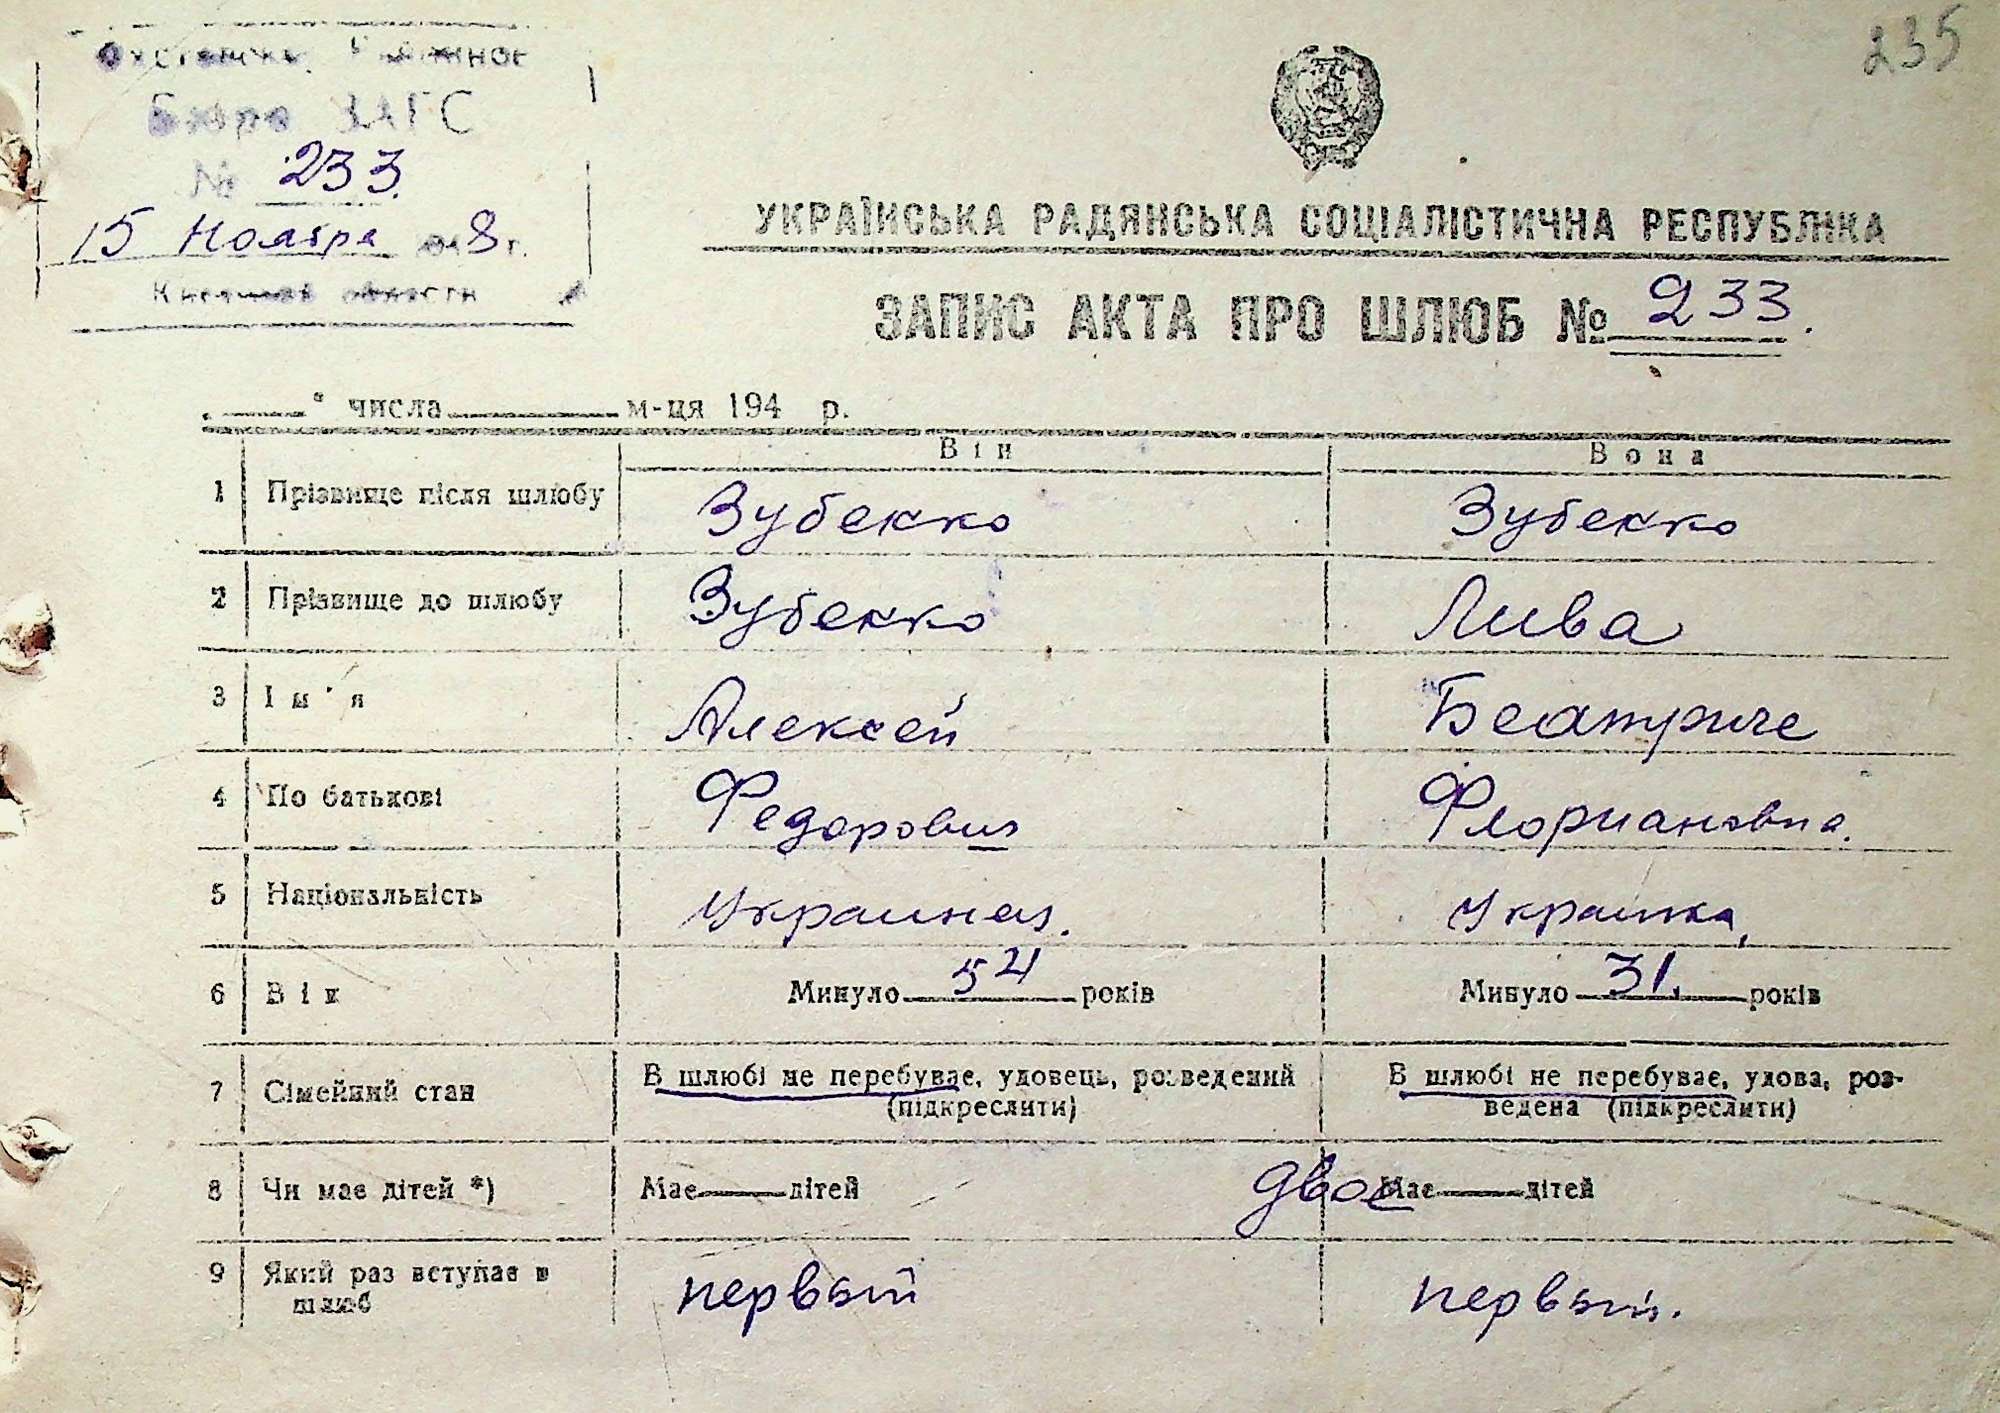 235
Бюро ЗАГС
№ 233.
15 Ноября 8 г.
области
УКРАЇНСЬКА РАДЯНСЬКА СОЦІАЛІСТИЧНА РЕСПУБЛІКА
ЗАПИС АКТА ПРО ШЛЮБ № 233.
" числа м-ця 194 р.
Він Вона
1 Прізвище після шлюбу Зубенко Зубенко
2 Прізвище до шлюбу Зубенко Лива
3 Ім'я Алексей Беатриче
4 По батькові Федорович Флориановна.
5 Національність Украинец. Украинка,
6 Вік Минуло 54 років Минуло 31. років
7 Сімейний стан В шлюбі не перебуває, удовець, розведений (підкреслити) В шлюбі не перебуває, удова, роз-
ведена (підкреслити)
8 Чи має дітей *) Має дітей двое Має дітей
9 Який раз вступає в шлюб первый первый.